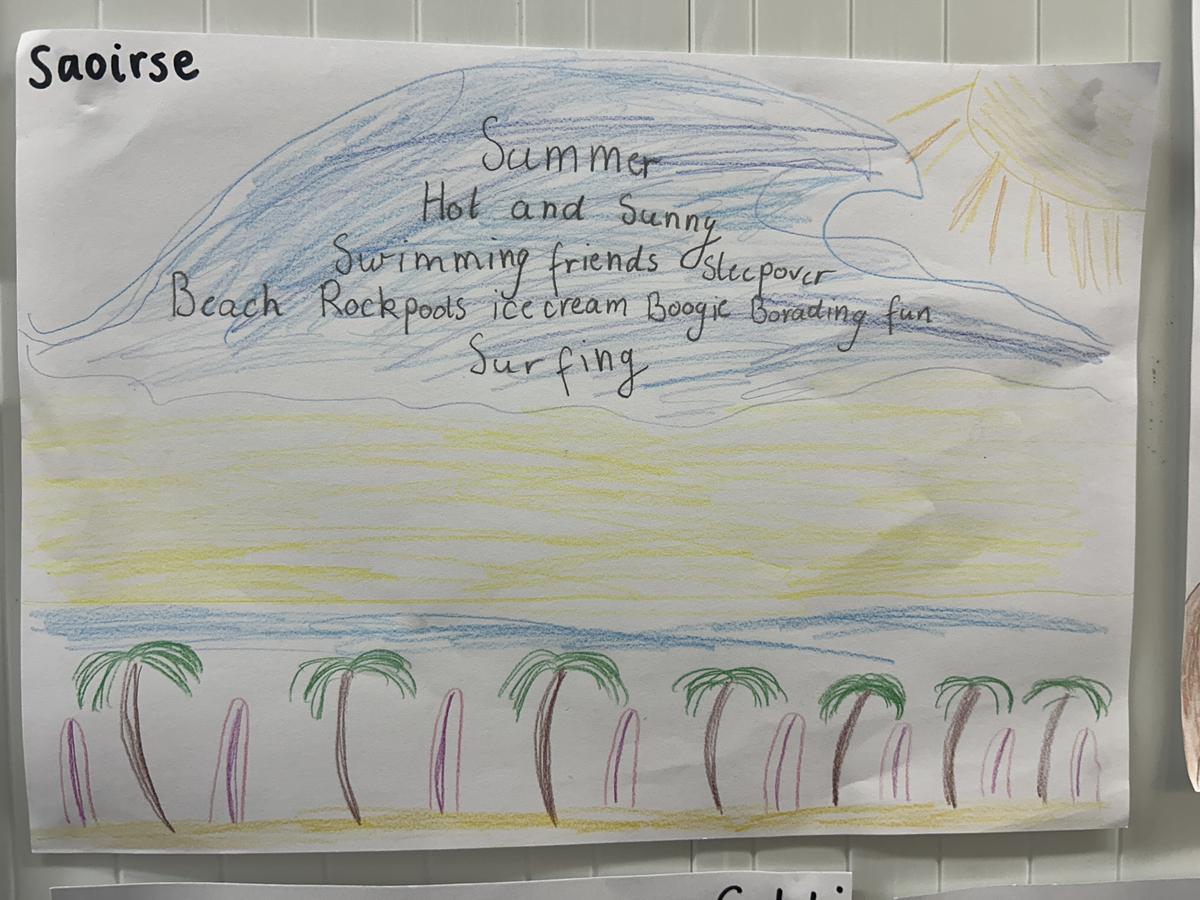 Saoirse
Summer
Hot and Sunny
Swimming friends Sleepover
Beach Rockpools ice cream Boogie Borading fun
Surfing